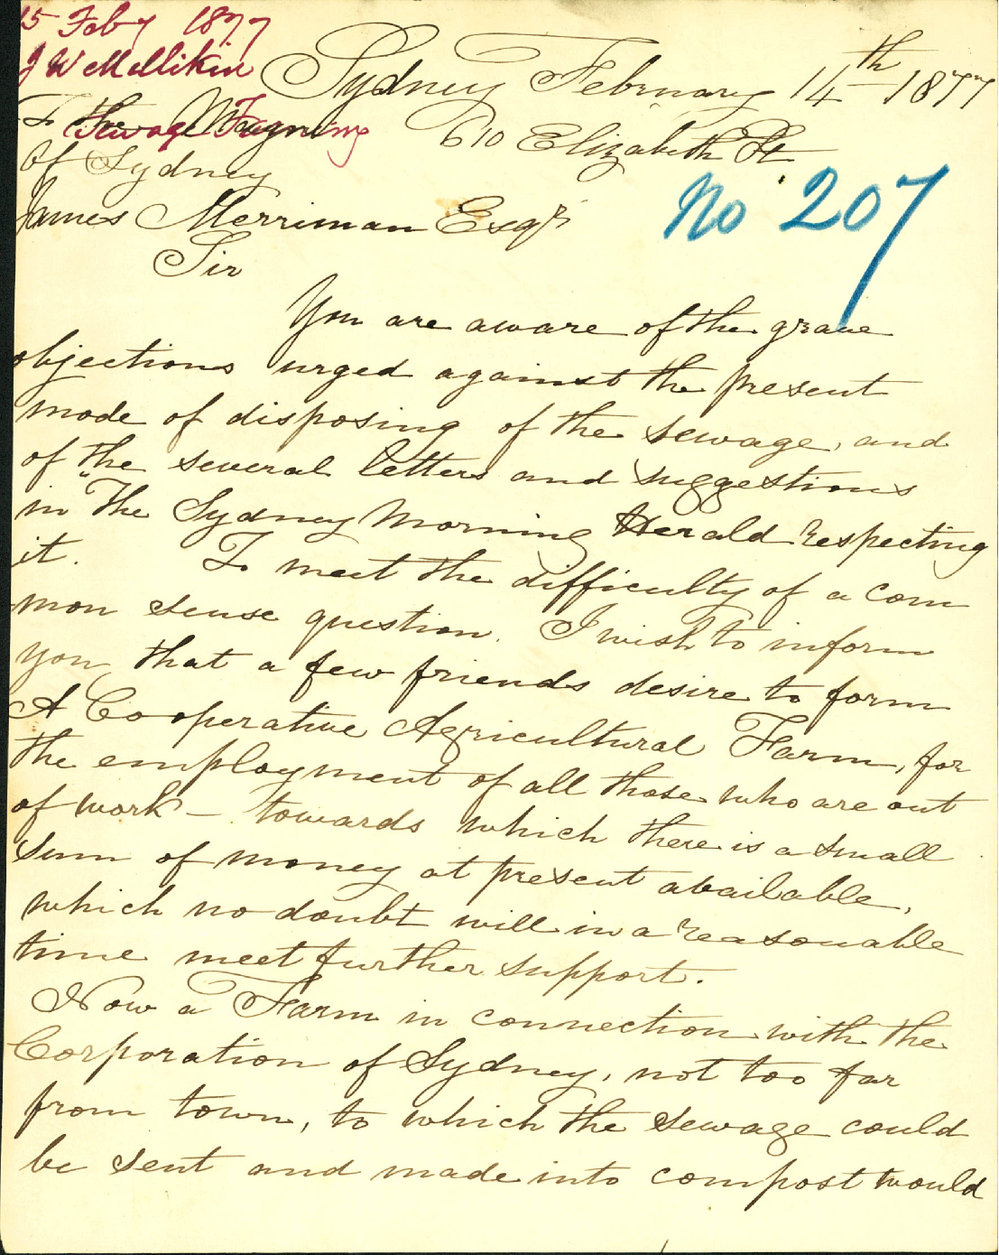 15 Feby 1877
J W McMillikin
Sewage Farming
Sydney February 14th 1877
610 Elizabeth St
No 207
To the Mayor
Of Sydney
James Merriman Esqr
Sir
You are aware of the grave
objections urged against the present
mode of disposing of the sewage, and
of the several letters and suggestions
in "The Sydney Morning Herald respecting
it. To meet the difficulty of a com
mon sense question. I wish to inform
you that a few friends desire to form
A Cooperative Agricultural Farm, for
the employment of all those who are out
of work – towards which there is a small
sum of money at present available,
which no doubt will in a reasonable
time meet further support.
Now a Farm in connection with the
Corporation of Sydney, not too far
from town, to which the sewage could
be sent and made into compost would